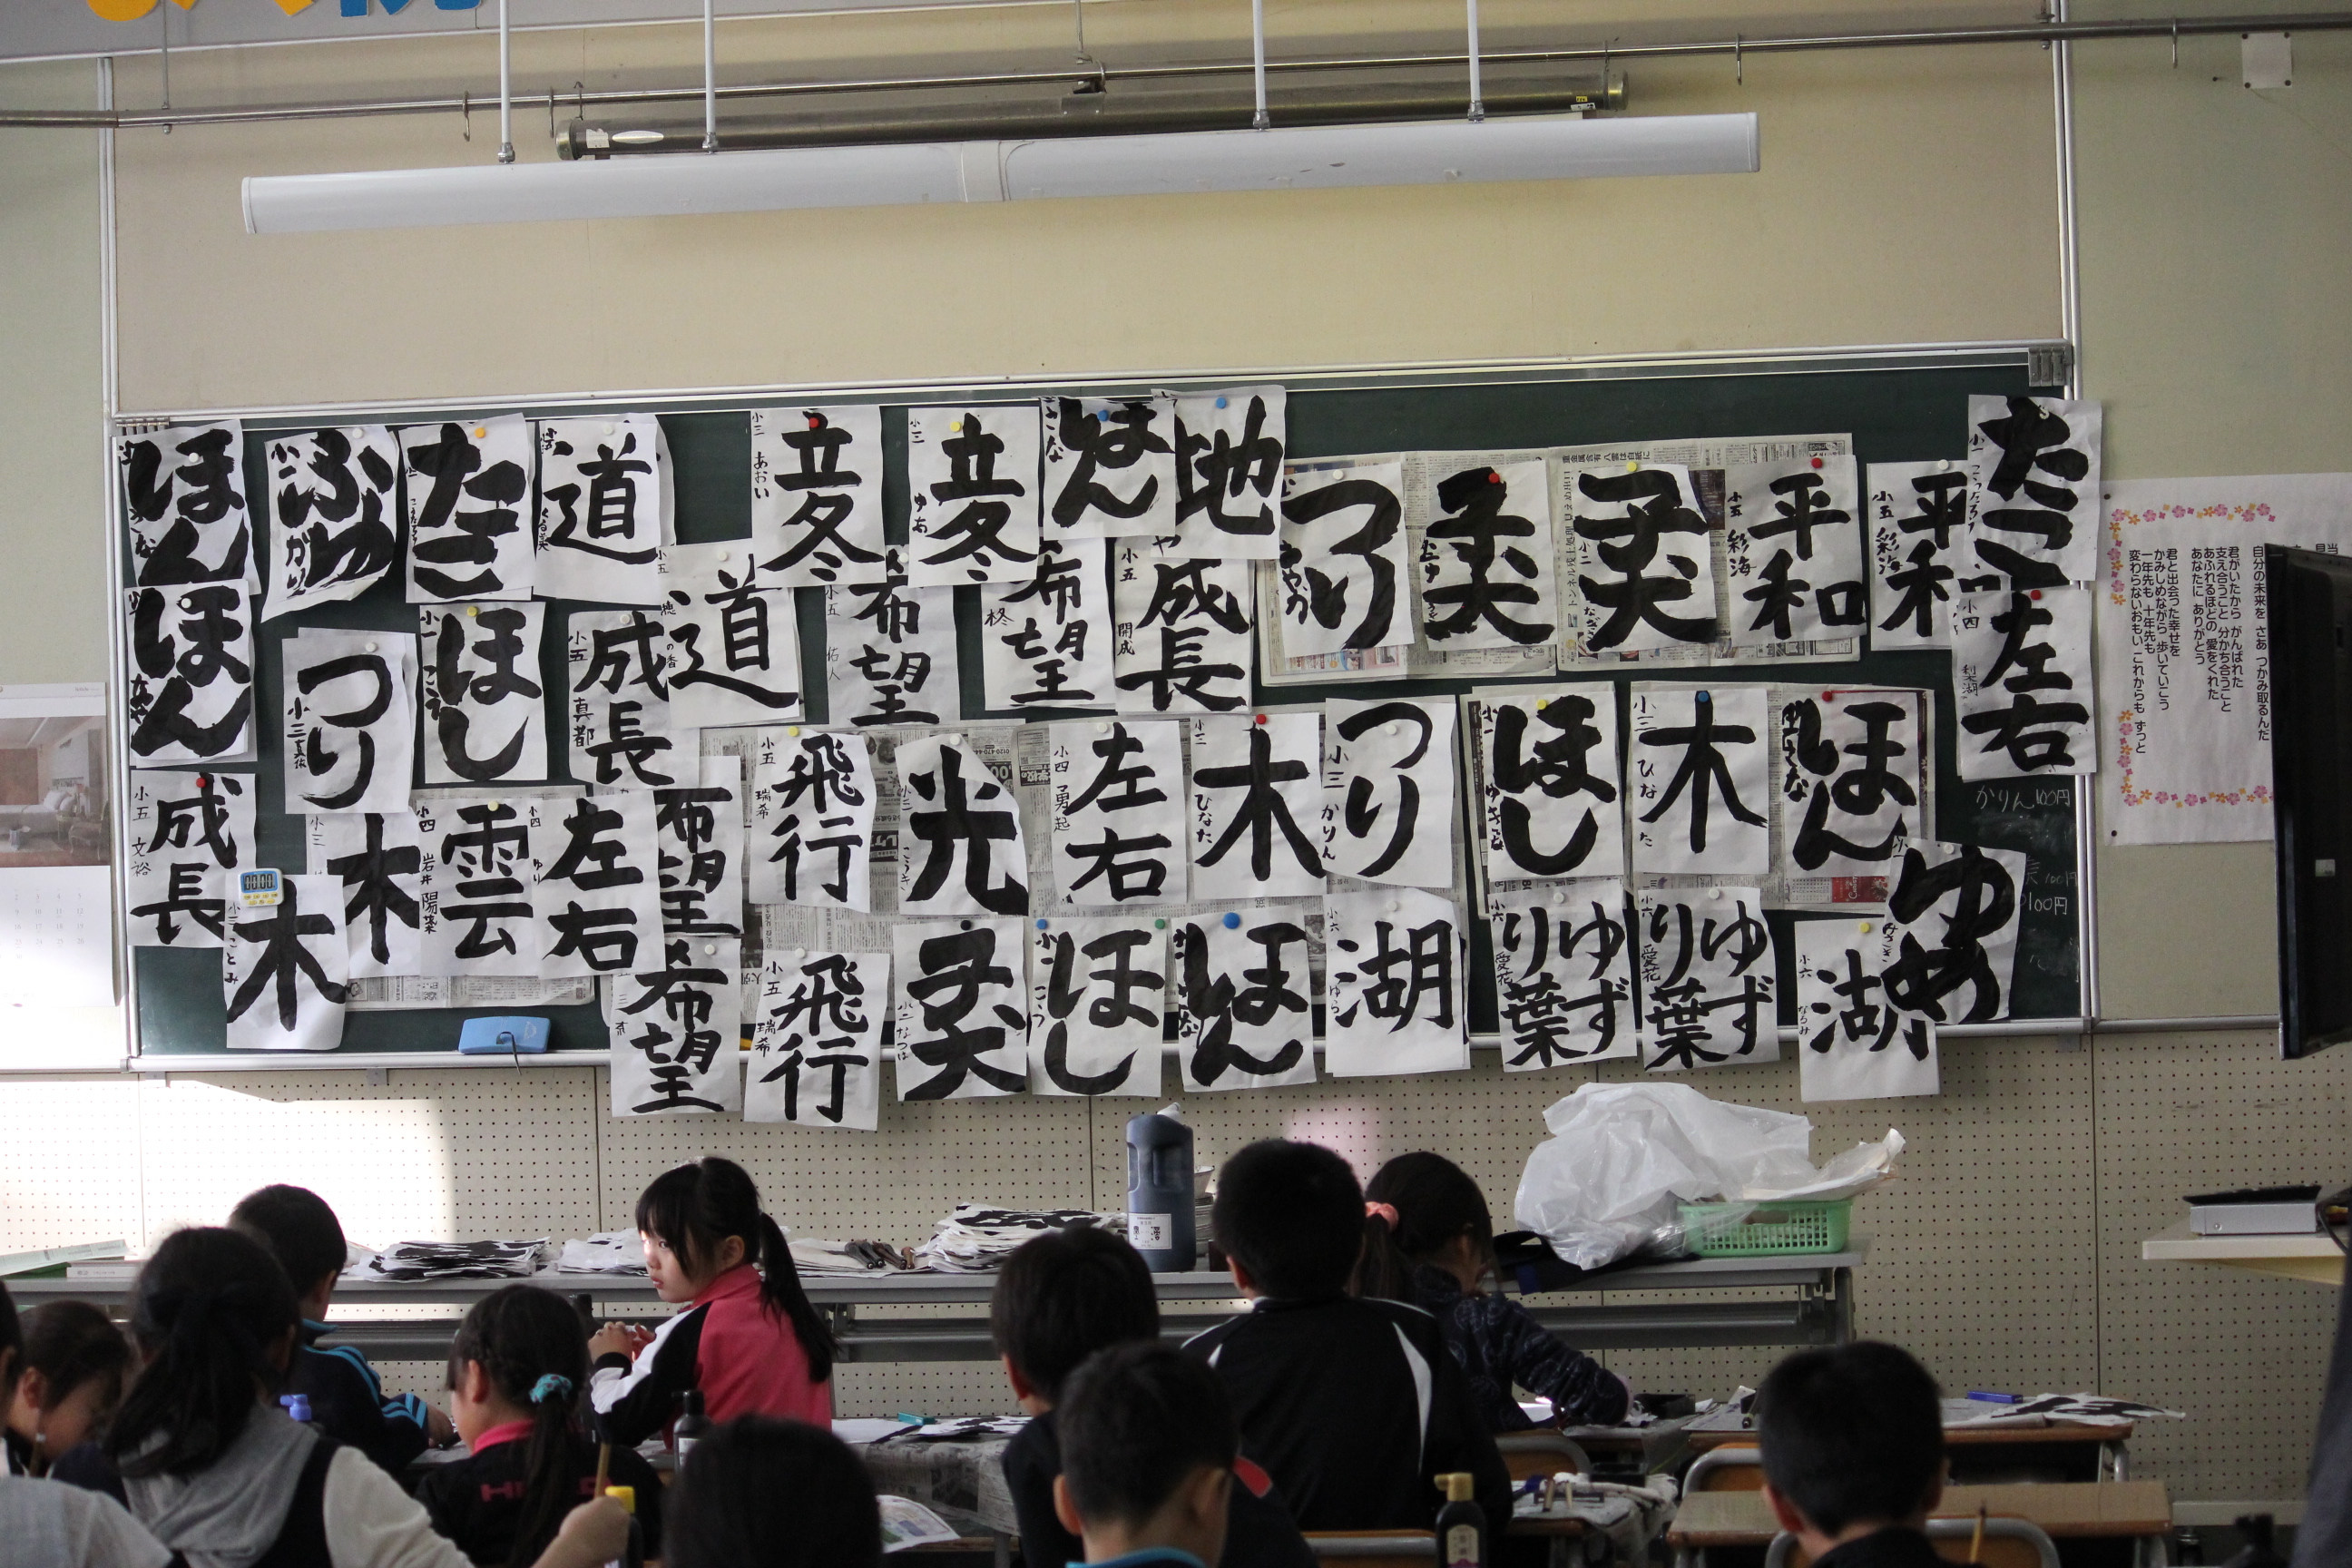 ほん
ふゆ
たこ
道
立冬
小三 あおい
立冬
小三 ゆあ
ほん
地
つり
子犬
子犬
平和
小五 彩海
平和
小五 彩海
たこ
ほん
つり
小三
ほし
小一
成長
小五 真都
道
小五
希望
小五 佑人
希望
柊
成長
小五 開成
左右
小四
成長
小五 文裕
木
小三 ことみ
木
小三
雲
小四 岩井 陽菜
左右
小四 ゆり
希望
飛行
小五 瑞希
光
小二 こうき
左右
小四 勇起
木
小三 ひなた
つり
小三 かりん
ほし
小一
木
小三 ひなた
ほん
ゆめ
希望
飛行
小五 瑞希
子犬
小二 なつほ
ほし
小一 こころ
ほん
湖
小六 ゆら
ゆずり葉
小六 愛花
ゆずり葉
小六 愛花
湖
小六 なるみ
かりん100円
100円
100円
00:00
自分の未来を さあ つかみ取るんだ
君がいたから がんばれた
支え合うこと 分かち合うこと
あふれるほどの 愛をくれた
あなたに ありがとう
君と出会った幸せを
かみしめながら 歩いていこう
一年先も 十年先も
変わらないおもい これからも ずっと